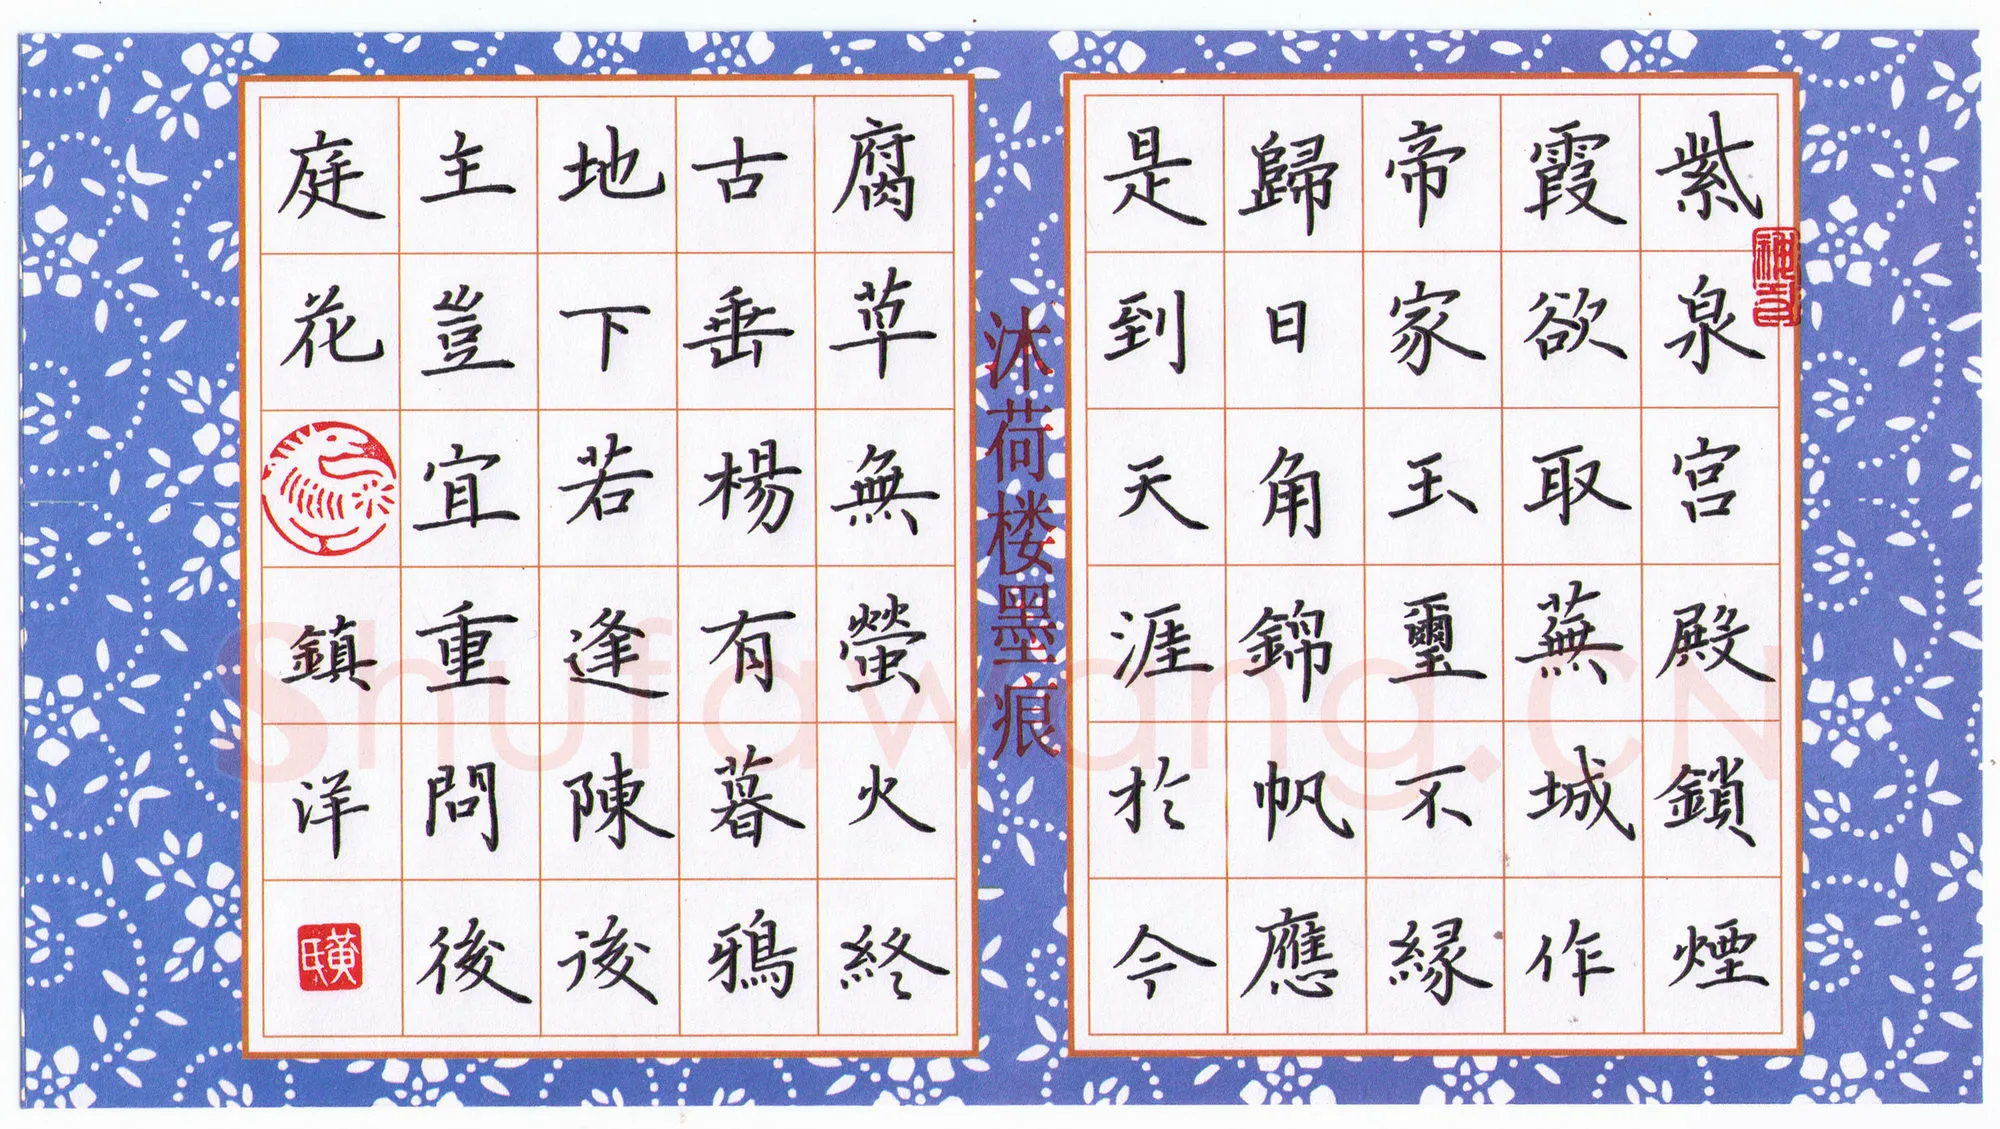 紫泉宮殿鎖煙
霞欲取蕪城作
帝家玉璽不縁
歸日角錦帆應
是到天涯於今
沐荷楼墨痕
腐草無螢火終
古垂楊有暮鴉
地下若逢陳後
主豈宜重問後
庭花
鎮洋
Shufawang.CN